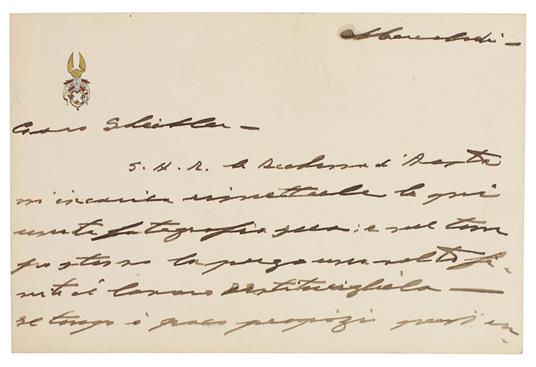 Mercoledì –
Caro Scheibler –
S. A. R. la Duchessa d'Aosta
m'incarica rimetterle la qui
unita fotografia sua: e nel tem
po stesso la prega una volta fi-
niti il lavoro restituirgliela –
il tempo è poco propizio quest'an-